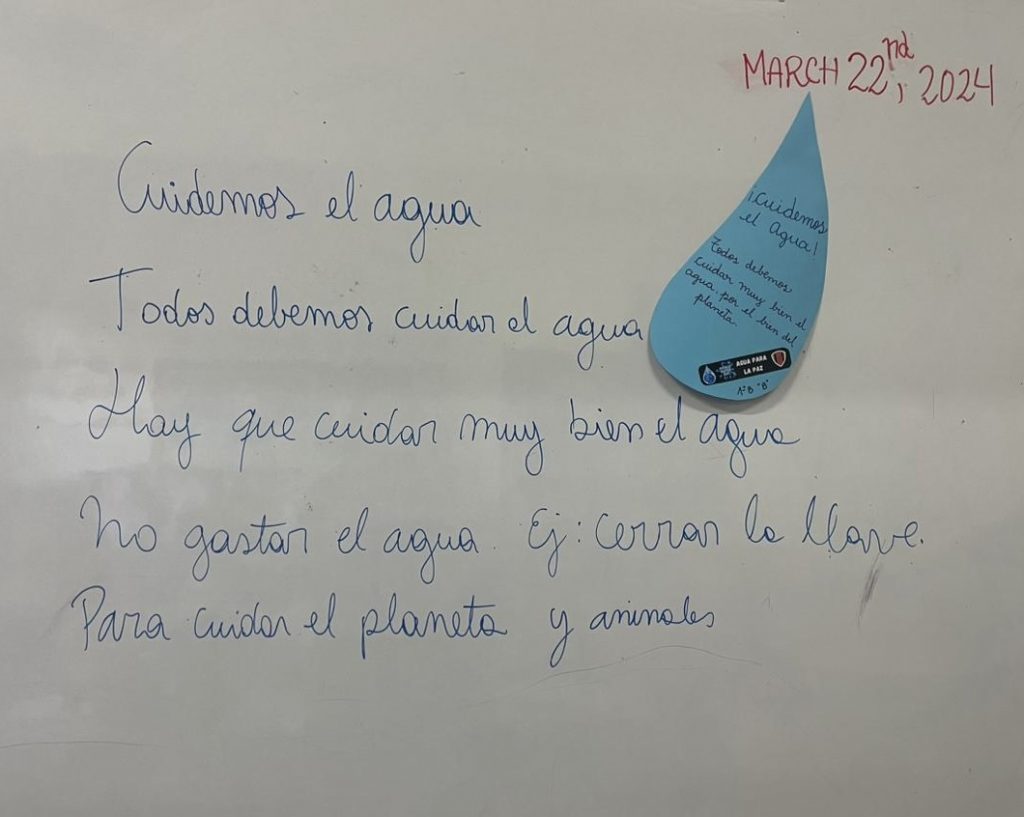 MARCH 22nd, 2024
Cuidemos el agua
Todos debemos cuidar el agua
Hay que cuidar muy bien el agua
No gastar el agua. Ej: cerrar la llave.
Para cuidar el planeta y animales
¡Cuidemos
el agua!
Todos debemos
cuidar muy bien el
agua, por el bien del
planeta.
AGUA PARA
LA PAZ
1°B "B"